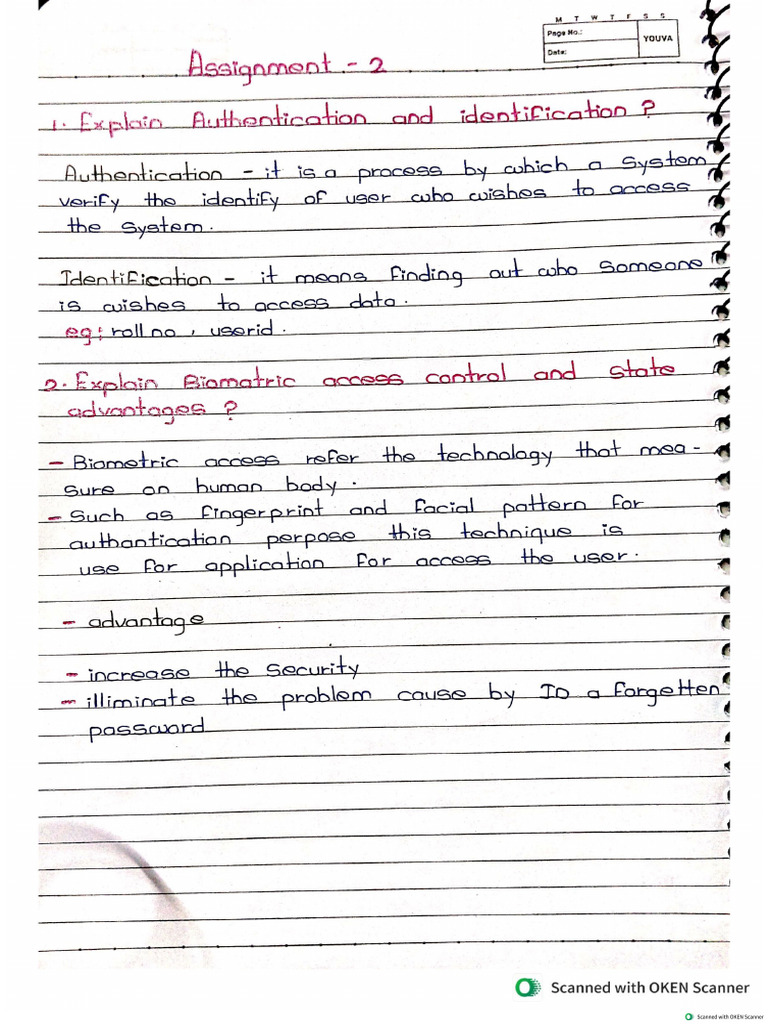 M T W T F S S
Page No.:
Date:
YOUVA
Assignment - 2
1. Explain Authentication and identification ?
Authentication - it is a process by which a system
verify the identify of user who wishes to access
the system.
Identification - it means finding out who someone
is wishes to access data.
eg: roll no, userid.
2. Explain Biomatric access control and state
advantages ?
- Biometric access refer the technology that mea-
sure on human body.
- Such as fingerprint and facial pattern for
authantication perpose this technique is
use for application for access the user.
- advantage
- increase the security
- illiminate the problem cause by ID a forgetten
password
Scanned with OKEN Scanner
Scanned with OKEN Scanner